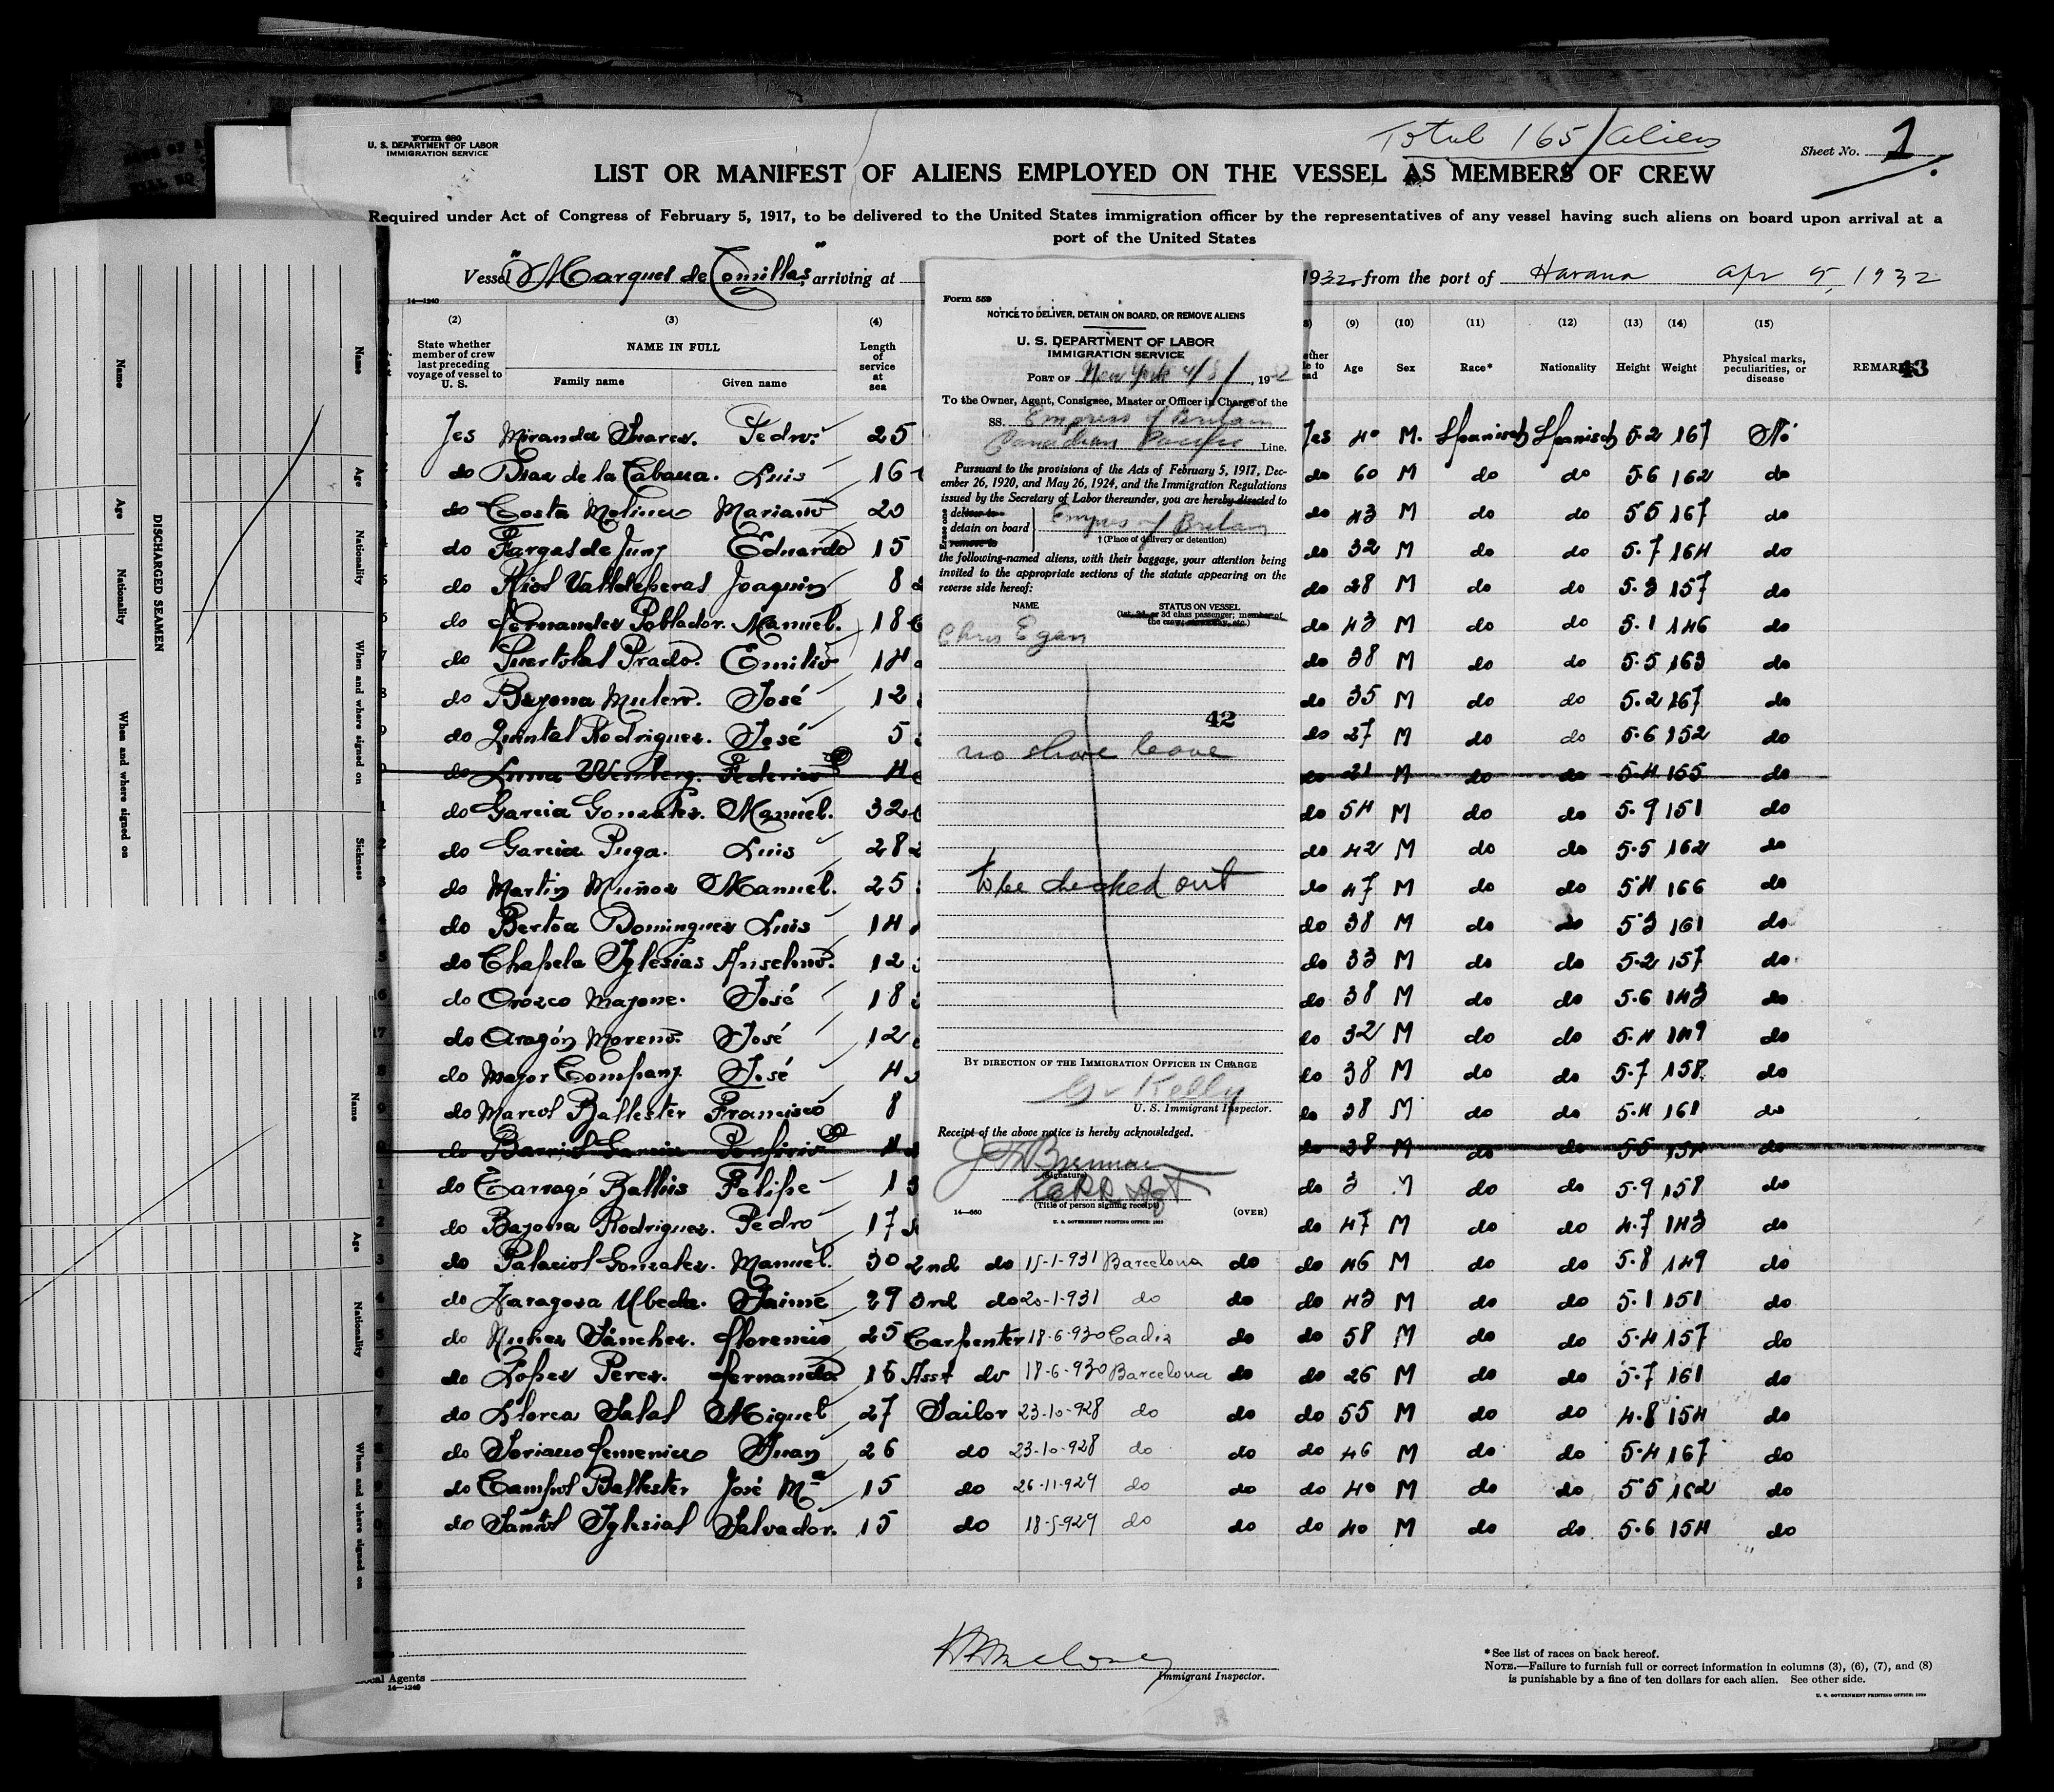 Form 680
U. S. DEPARTMENT OF LABOR
IMMIGRATION SERVICE
Total 165 Aliens
Sheet No. 1
LIST OR MANIFEST OF ALIENS EMPLOYED ON THE VESSEL AS MEMBERS OF CREW
Required under Act of Congress of February 5, 1917, to be delivered to the United States immigration officer by the representatives of any vessel having such aliens on board upon arrival at a
port of the United States
Vessel "Marques de Comillas", arriving at 1932, from the port of Havana Apr 5, 1932
14—1240
(2) (3) (4) (9) (10) (11) (12) (13) (14) (15)
State whether member of crew last preceding voyage of vessel to U. S.
NAME IN FULL
Family name Given name
Length of service at sea
Age Sex Race* Nationality Height Weight
Physical marks, peculiarities, or disease
REMARKS
43
Form 559
NOTICE TO DELIVER, DETAIN ON BOARD, OR REMOVE ALIENS
U. S. DEPARTMENT OF LABOR
IMMIGRATION SERVICE
PORT OF New York 4/8/, 1932
To the Owner, Agent, Consignee, Master or Officer in Charge of the
SS. Empress of Britain
Canadian Pacific Line.
Pursuant to the provisions of the Acts of February 5, 1917, Dec-
ember 26, 1920, and May 26, 1924, and the Immigration Regulations
issued by the Secretary of Labor thereunder, you are hereby directed to
Erase one
deliver to
detain on board
remove to
Empress of Britain
† (Place of delivery or detention)
the following-named aliens, with their baggage, your attention being
invited to the appropriate sections of the statute appearing on the
reverse side hereof:
NAME STATUS ON VESSEL
(1st, 2d, or 3d class passenger; member of
the crew, stowaway, etc.)
Chris Egan
42
no shore leave
to be checked out
BY DIRECTION OF THE IMMIGRATION OFFICER IN CHARGE
Kelly
U. S. Immigrant Inspector.
Receipt of the above notice is hereby acknowledged.
Brennan
(Signature)
(Title of person signing receipt)
14—660 (OVER)
U. S. GOVERNMENT PRINTING OFFICE: 1929
Yes Miranda Suarez. Pedro. 25 Yes 40 M. Spanisch Spanisch 5.2 167 No
do Diaz de la Cabana. Luis 16 do 60 M do do 5.6 162 do
do Costa Molina Mariano 20 do 43 M do do 5.5 167 do
do Fargas de Juny Eduardo 15 do 32 M do do 5.7 164 do
do Rios Valldeperas Joaquin 8 do 28 M do do 5.3 157 do
do Fernandez Poblador. Manuel. 18 do 43 M do do 5.1 146 do
do Puertolas Prado. Emilio 14 do 38 M do do 5.5 163 do
do Bayona Mulero. José 12 do 35 M do do 5.2 167 do
do Quintal Rodriguez. José 5 do 27 M do do 5.6 152 do
do Luna Wemberg. Federico 4 do 21 M do do 5.4 155 do
do Garcia Gonzalez. Manuel. 32 do 54 M do do 5.9 151 do
do Garcia Puga. Luis 28 do 42 M do do 5.5 162 do
do Martin Muñoz Manuel. 25 do 47 M do do 5.4 166 do
do Bertoa Dominguez Luis 14 do 38 M do do 5.3 161 do
do Chapela Iglesias Anselmo. 12 do 33 M do do 5.2 157 do
do Orozco Mayone. José 18 do 38 M do do 5.6 143 do
do Aragón Moreno. José 12 do 32 M do do 5.4 149 do
do Mayor Company. José 4 do 38 M do do 5.7 158 do
do Marcos Ballester Francisco 8 do 38 M do do 5.4 161 do
do Barrios Garcia Porfirio 4 do 28 M do do 5.5 154 do
do Tarragó Ballus Felipe 1 do 3 M do do 5.9 158 do
do Bayona Rodriguez. Pedro 17 do 47 M do do 4.7 143 do
do Palacios Gonzalez. Manuel. 30 2nd do 15-1-931 Barcelona do do 46 M do do 5.8 149 do
do Zaragoza Ubeda. Jaime 29 3rd do 20-1-931 do do do 43 M do do 5.1 151 do
do Nuñez Sánchez. Florencio 25 Carpenter 18-6-930 Cadiz do do 58 M do do 5.4 157 do
do Lopez Perez. Fernando. 15 Asst do 18-6-930 Barcelona do do 26 M do do 5.7 161 do
do Llorca Salas Miguel 27 Sailor 23-10-928 do do do 55 M do do 4.8 154 do
do Soriano Jemenico Juan 26 do 23-10-928 do do do 46 M do do 5.4 167 do
do Campos Ballester José Mª 15 do 26-11-929 do do do 40 M do do 5.5 162 do
do Santos Iglesias Salvador. 15 do 18-5-929 do do do 40 M do do 5.6 154 do
Immigrant Inspector.
*See list of races on back hereof.
NOTE.—Failure to furnish full or correct information in columns (3), (6), (7), and (8)
is punishable by a fine of ten dollars for each alien. See other side.
U. S. GOVERNMENT PRINTING OFFICE: 1929
Agents
14—1240
DISCHARGED SEAMEN
Name Age Nationality When and where signed on Sickness
Name Age Nationality When and where signed on
Name Age Nationality When and where signed on